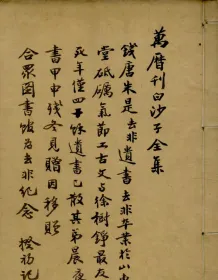 萬曆刊白沙子全集
錢唐朱是去非遺書去非卒業於山東
堂砥礪氣節工古文與徐樹錚最友
死年僅四十餘遺書已散其弟晨夜
書甲申殘冬見贈因移贈
合眾圖書館為去非紀念 揆初記